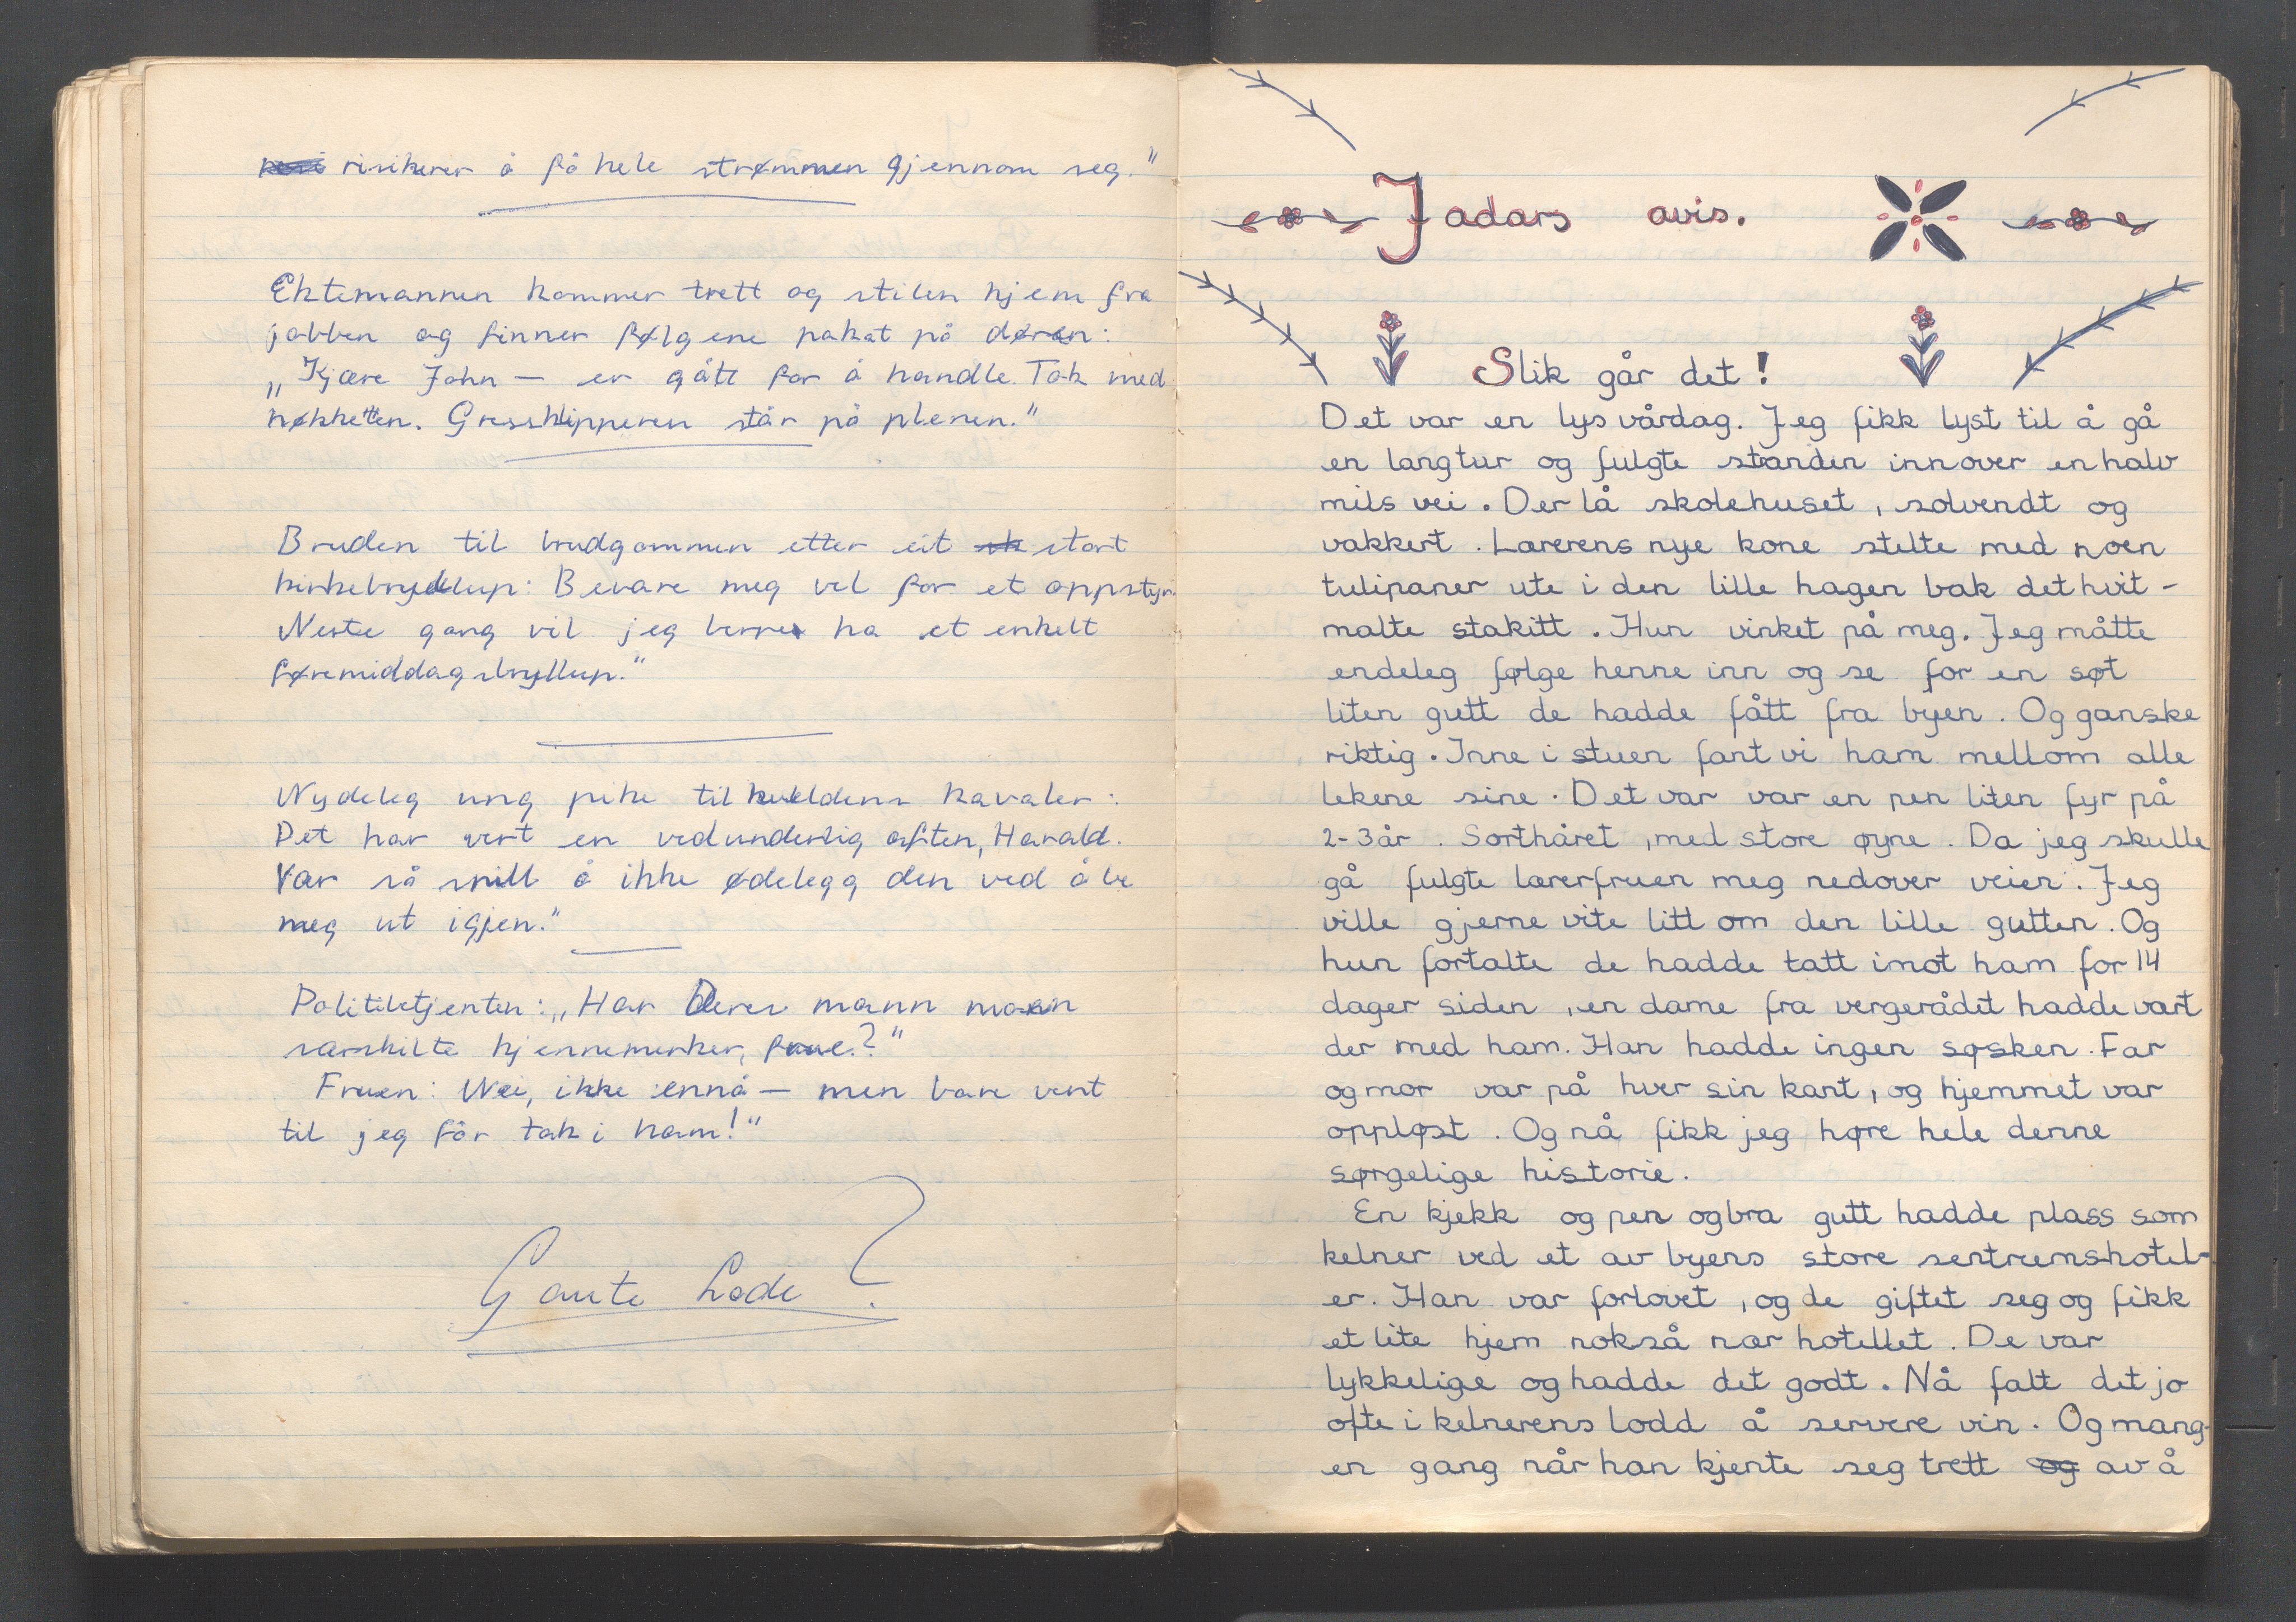 risikerer å få hele strømmen gjennom seg."
Ektemannen kommer trett og stilen hjem fra
jobben og finner følgene pakat på døren:
„Kjære John — er gått for å handle. Tok med
nøkkelen. Gressklipperen står på plenen."
Bruden til brudgommen etter eit stort
kirkebryllup: Bevare meg vel for et oppstyr.
Neste gang vil jeg berre ha et enkelt
føremiddagsbryllup."
Nydeleg ung pike til kveldens kavaler:
Det har vert en vedunderlig aften, Harald.
Vær så snill å ikke ødelegg den ved å be
meg ut igjen."
Politibetjenten: „Har Deres mann noen
særskilte kjennemerker, frue?"
Fruen: Nei, ikke ennå — men bare vent
til jeg får tak i ham!"
Gaute Lode ?
Jadars avis.
Slik går det!
Det var en lys vårdag. Jeg fikk lyst til å gå
en langtur og fulgte stranden innover en halv
mils vei. Der lå skolehuset, solvendt og
vakkert. Lærerens nye kone stelte med noen
tulipaner ute i den lille hagen bak det hvit-
malte stakitt. Hun vinket på meg. Jeg måtte
endeleg følge henne inn og se for en søt
liten gutt de hadde fått fra byen. Og ganske
riktig. Inne i stuen fant vi ham mellom alle
lekene sine. Det var var en pen liten fyr på
2-3 år. Sorthåret, med store øyne. Da jeg skulle
gå fulgte lærerfruen meg nedover veien. Jeg
ville gjerne vite litt om den lille gutten. Og
hun fortalte de hadde tatt imot ham for 14
dager siden, en dame fra vergerådet hadde vært
der med ham. Han hadde ingen søsken. Far
og mor var på hver sin kant, og hjemmet var
oppløst. Og nå fikk jeg høre hele denne
sørgelige historie.
En kjekk og pen og bra gutt hadde plass som
kelner ved et av byens store sentrumshotel-
er. Han var forlovet, og de giftet seg og fikk
et lite hjem nokså nær hotellet. De var
lykkelige og hadde det godt. Nå falt det jo
ofte i kelnerens lodd å servere vin. Og mang-
en gang når han kjente seg trett og av å